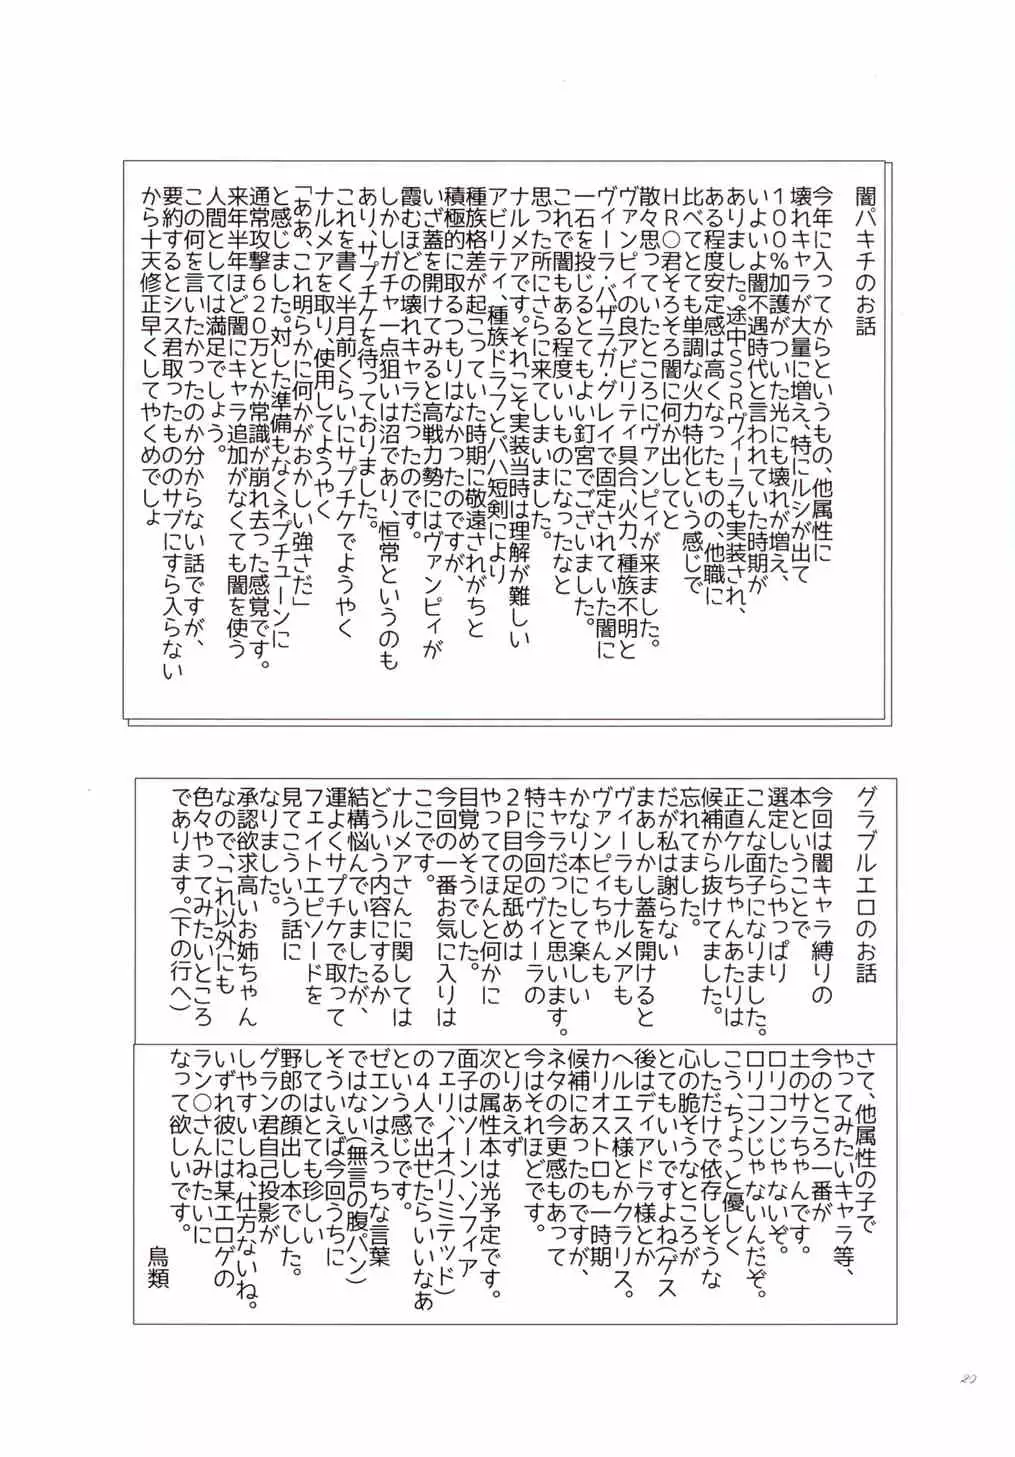 闇パキチのお話
今年に入ってからというもの、他属性に
壊れキャラが大量に増え、特にルシが出て
１００％加護がついた光にも壊れが増え、
いよいよ闇不遇時代と言われていた時期が
ありました。途中ＳＳＲヴィーラも実装され、
ある程度安定感は高くなったものの、他職に
比べてとても単調な火力特化という感じで
ＨＲ○君そろそろ闇に何か出してと
散々思っていたところにヴァンピィが来ました。
ヴァンピィの良アビリティ具合、火力、種族不明と
ヴィーラ・バザラガ・グレイで固定されていた闇に
一石を投じるとてもよい釘宮でございました。
これで闇もある程度いいものになったなと
思った所にさらに来てしまいました。
ナルメアです。それこそ実装当時は理解が難しい
アビリティ、種族ドラフとバハ短剣により
種族格差が起こっていた時期に敬遠されがちと
積極的に取るつもりはなかったのですが、
いざ蓋を開けてみると高戦力勢にはヴァンピィが
霞むほどの壊れキャラだったのです。
しかしガチャ一点狙いは沼であり、恒常というのも
あり、サプチケを待っておりました。
これを書く半月前くらいにサプチケでようやく
ナルメアを取り、使用してようやく
「ああ、これ明らかに何かがおかしい強さだ」
と感じました。対した準備もなくネプチューンに
通常攻撃６２０万とか常識が崩れ去った感覚です。
来年半年ほど闇にキャラ追加がなくても闇を使う
人間としては満足でしょう。
この何を言いたかったのか分からない話ですが、
要約するとシス君取ったもののサブにすら入らない
から十天修正早くしてやくめでしょ
グラブルエロのお話
今回は闇キャラ縛りの
本ということで
選定したらやっぱり
こんな面子になりました。
正直ケルちゃんあたりは
候補から抜けてました。
忘れてました。
だが私は謝らない
まあしかし蓋を開けると
ヴィーラもナルメアも
ヴァンピィちゃんも
かなり本にして楽しい
キャラだったと思います。
特に今回のヴィーラの
２Ｐ目の足舐めは
やっててほんと何かに
目覚めそうでした。
今回の一番お気に入りは
ここです。
ナルメアさんに関しては
どういう内容にするか
結構悩んでいましたが、
運よくサプチケで取って
フェイトエピソードを
見てこういう話に
なりました。
承認欲求高いお姉ちゃん
なので、これ以外にも
色々やってみたいところ
であります。（下の行へ）
さて、他属性の子で
やってみたいキャラ等、
今のところ一番が
土のサラちゃんです。
ロリコンじゃないぞ。
ロリコンじゃないんだぞ。
こう、ちょっと優しく
しただけで依存しそうな
心の脆そうなところが
とてもいいですよね（ゲス
後はディアドラ様とか
ヘルエス様とかクラリス。
カリオストロも一時期
候補にあったのですが、
ネタの今更感もあって
今はそれほどです。
とりあえず
次の属性本は光予定です。
面子はソーン、ソフィア
フェリ、イオ（リミテッド）
の４人で出せたらいいなあ
という感じです。
ゼエンはえっちな言葉
ではない（無言の腹パン）
そういえば今回うちに
してはとても珍しい
野郎の顔出し本でした。
グラン君自己投影が
しやすいしね、仕方ないね。
いずれ彼には某エロゲの
ラン○さんみたいに
なって欲しいです。
鳥類
20